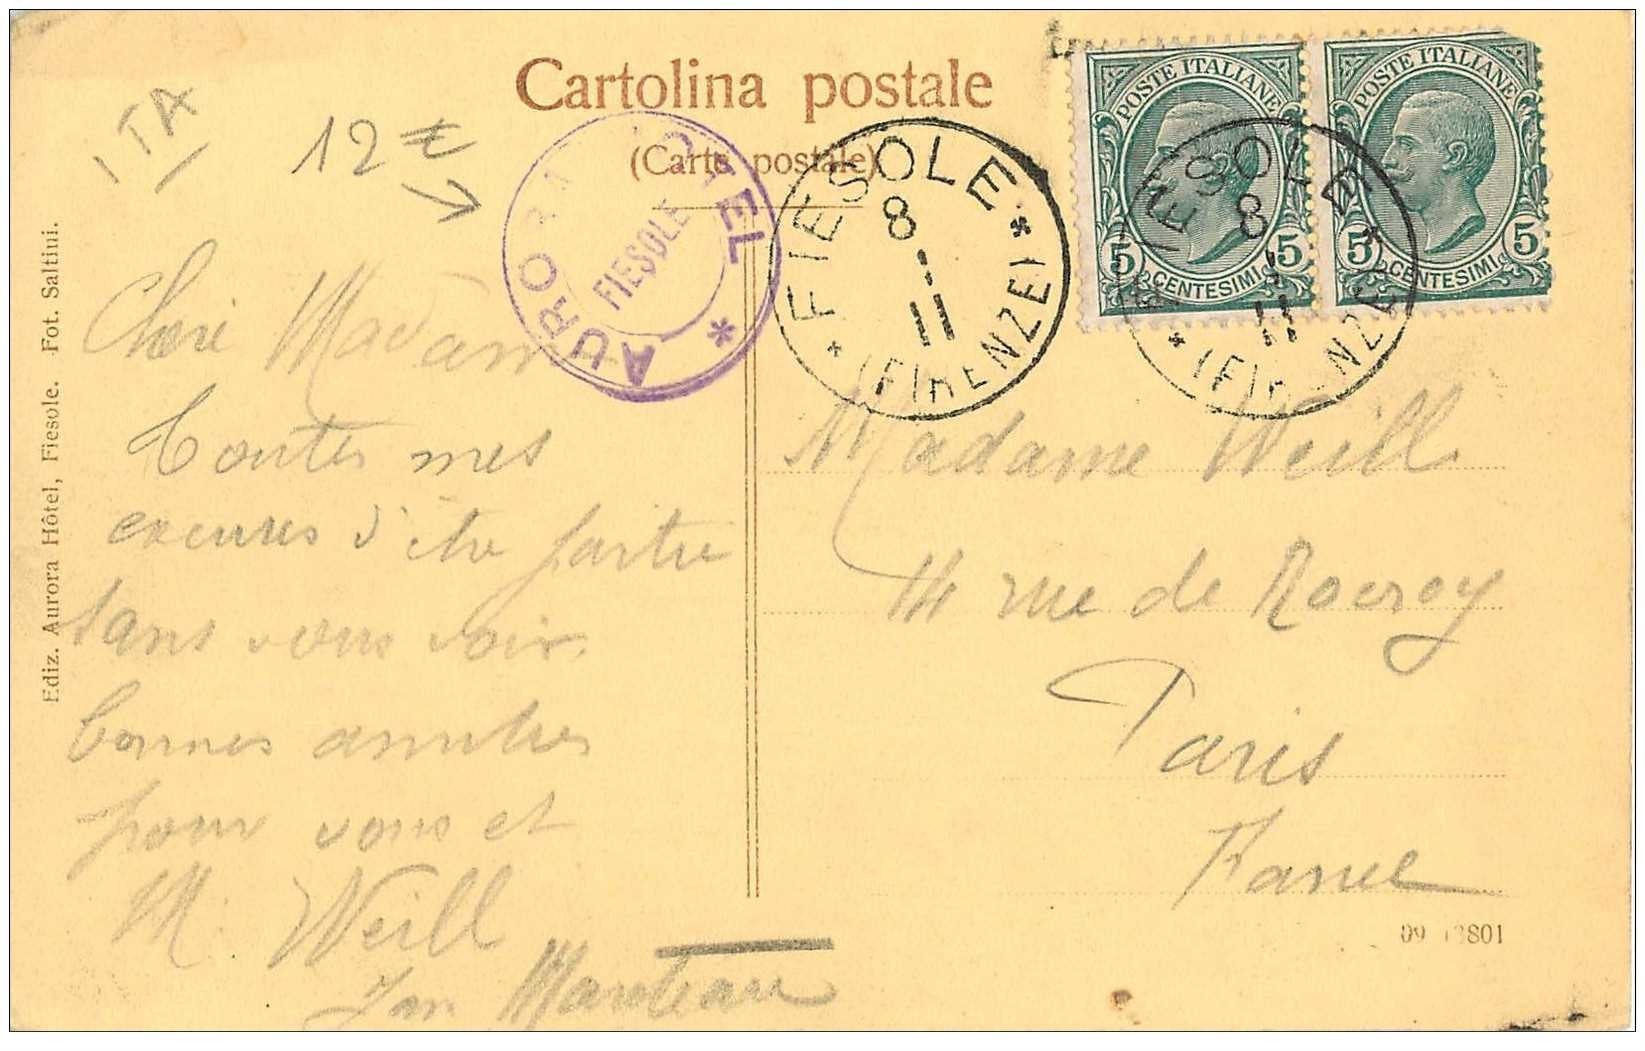 Cartolina postale
(Carte postale)
ITA
12 €
AURORA HOTEL
FIESOLE
FIESOLE
8
11
(FIRENZE)
POSTE ITALIANE
5 CENTESIMI 5
POSTE ITALIANE
5 CENTESIMI 5
FIESOLE
8
11
(FIRENZE)
Ediz. Aurora Hôtel, Fiesole. Fot. Saltini.
Chère Madame
Toutes mes
excuses d'être partie
sans vous voir.
bonnes amitiés
pour vous et
M. Weill
Madame Weill
14 rue de Rocroy
Paris
France